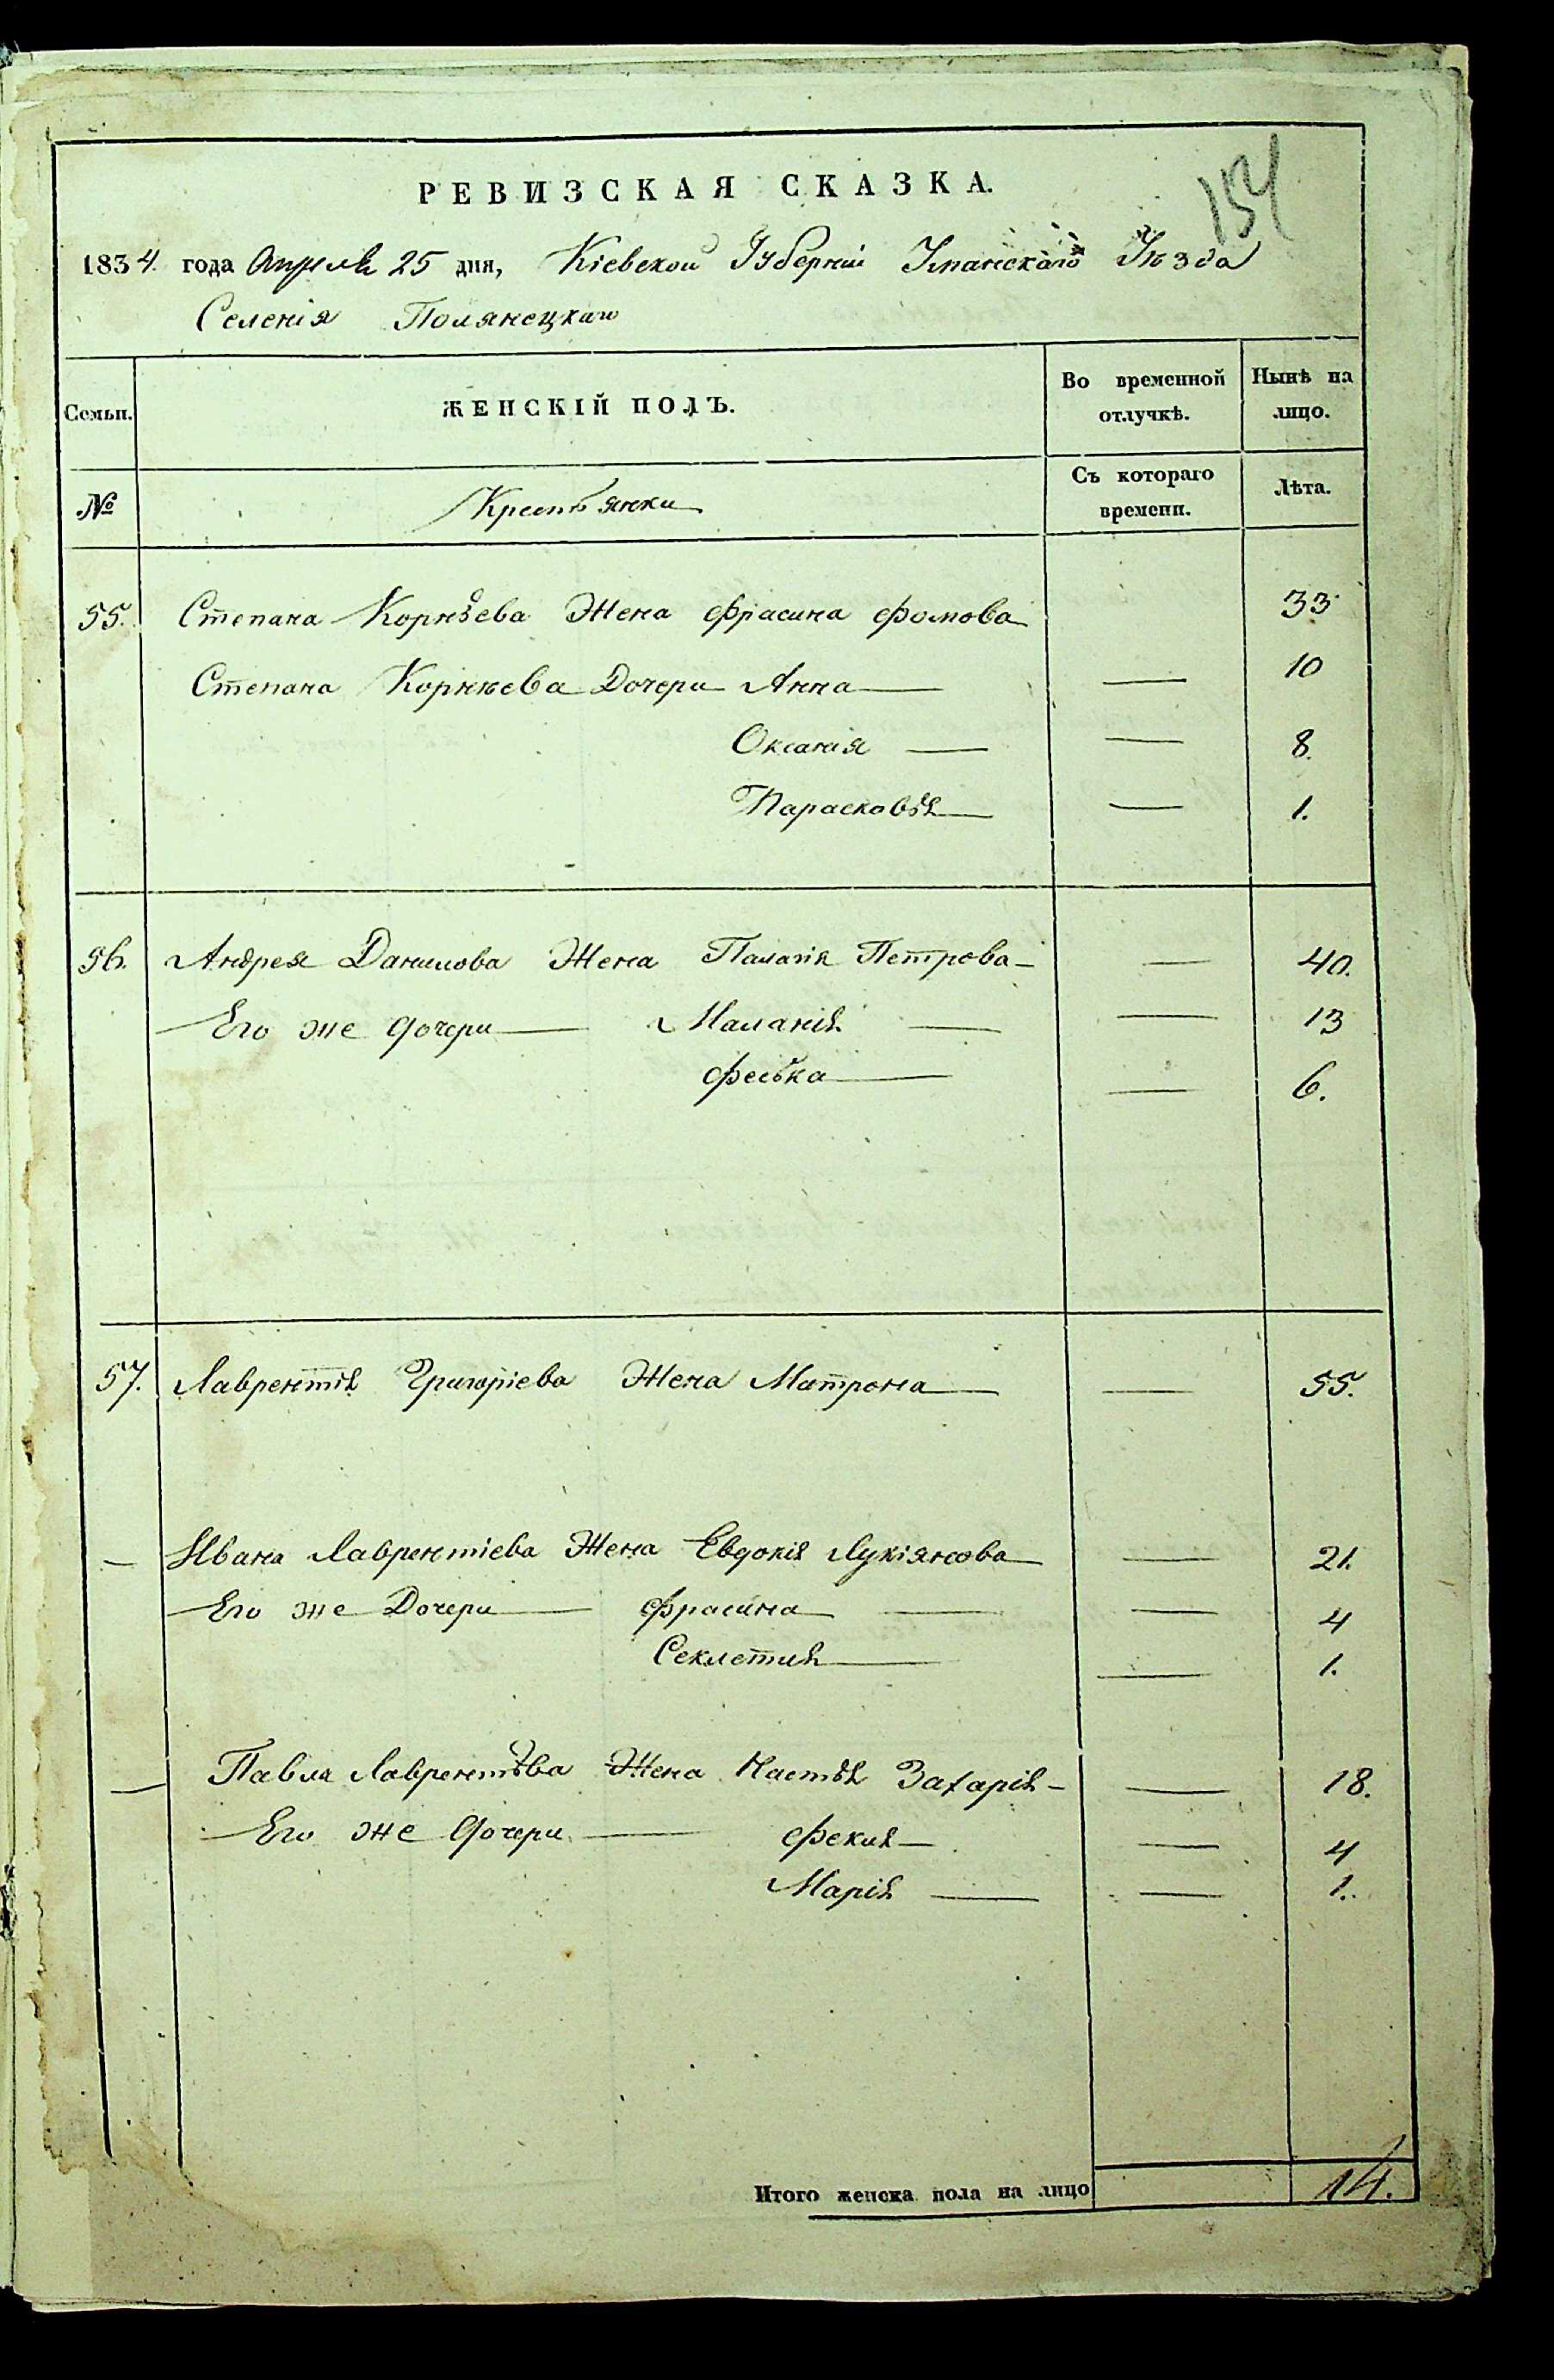 154
РЕВИЗСКАЯ СКАЗКА.
1834. года Апреля 25 дня, Кіевской Губерніи Уманскаго Уѣзда
Селенія Полянецкаго
Семьи. ЖЕНСКІЙ ПОЛЪ. Во временной отлучкѣ. Нынѣ на лицо.
№ Крестьянки Съ котораго времени. Лѣта.
55. Степана Корнѣева Жена Фрасина Фомова 33
Степана Корнѣева Дочери Анна — — 10
Оксанія — — 8.
Парасковія — — 1.
56. Андрея Данилова Жена Палагія Петрова — — 40.
Его же дочери — Маланія — — 13
Феська — — 6.
57. Лаврентія Григоріева Жена Матрона — — 55.
— Ивана Лаврентіева Жена Евдокія Лукіянова — — 21.
Его же Дочери — Фрасина — — 4
Секлетия — — 1.
— Павла Лаврентѣва Жена Настѣя Захарія — — 18.
Его же дочери — Фекия — — 4
Марія — — 1.
Итого женска пола на лицо 14.